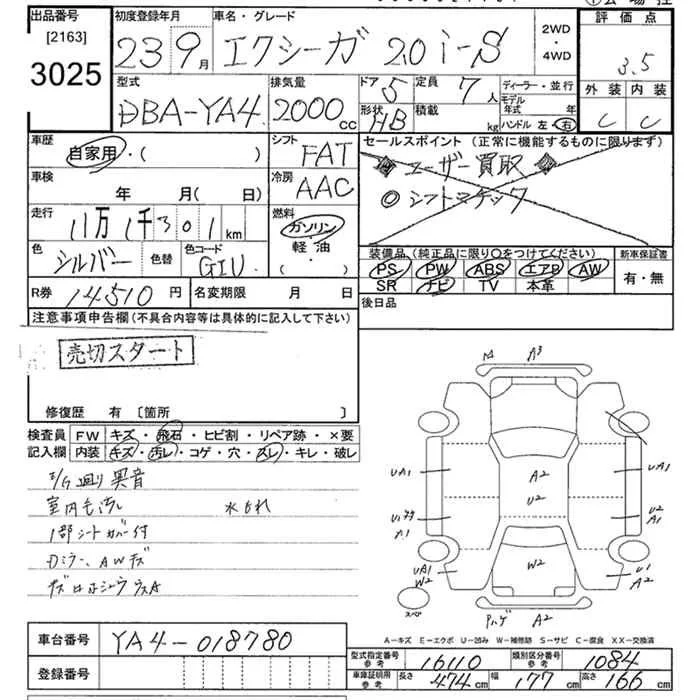 出品番号 初度登録年月 車名・グレード 2WD・4WD 評価点
[2163] 3025 23 9月 エクシーガ 2.0i-S 3.5
型式 排気量 ドア 5 定員 7人 ディーラー・並行 外装 内装
DBA-YA4 2000cc 形状 HB 積載 kg モデル年式 年 C C
ハンドル 左・右
車歴 自家用・( ) シフト FAT セールスポイント (正常に機能するものに限ります)
ユーザー買取
車検 年 月( 日) 冷房 AAC シフトマチック
走行 11万1千301km 燃料 ガソリン 軽油・( )
色 シルバー 色替 色コード G1U 装備品(純正品に限り○をつけてください) 新車保証書
PS PW ABS エアB AW 有・無
SR ナビ TV 本革
R券 14510円 名変期限 月 日 後日品
注意事項申告欄(不具合内容等は具体的に記入して下さい)
売切スタート
修復歴 有 [箇所 ]
検査員記入欄 FW キズ・飛石・ヒビ割・リペア跡・×要
内装 キズ・汚レ・コゲ・穴・スレ・キレ・破レ
E/G廻り異音
室内モ汚レ 水もれ
1部シートカバー付
Dミラー、AWキズ
A3
UA1 A2 UA1
U2
U2 A1
A1
UA1 W2 W2 U1 A2
スペア ハゲ A2
A-キズ E-エクボ U-凹み W-補修跡 S-サビ C-腐食 XX-交換済
車台番号 YA4-018780
型式指定番号 参考 16110 類別区分番号 参考 1084
登録番号 車庫証明用 参考 長さ 474cm 幅 177cm 高さ 166cm